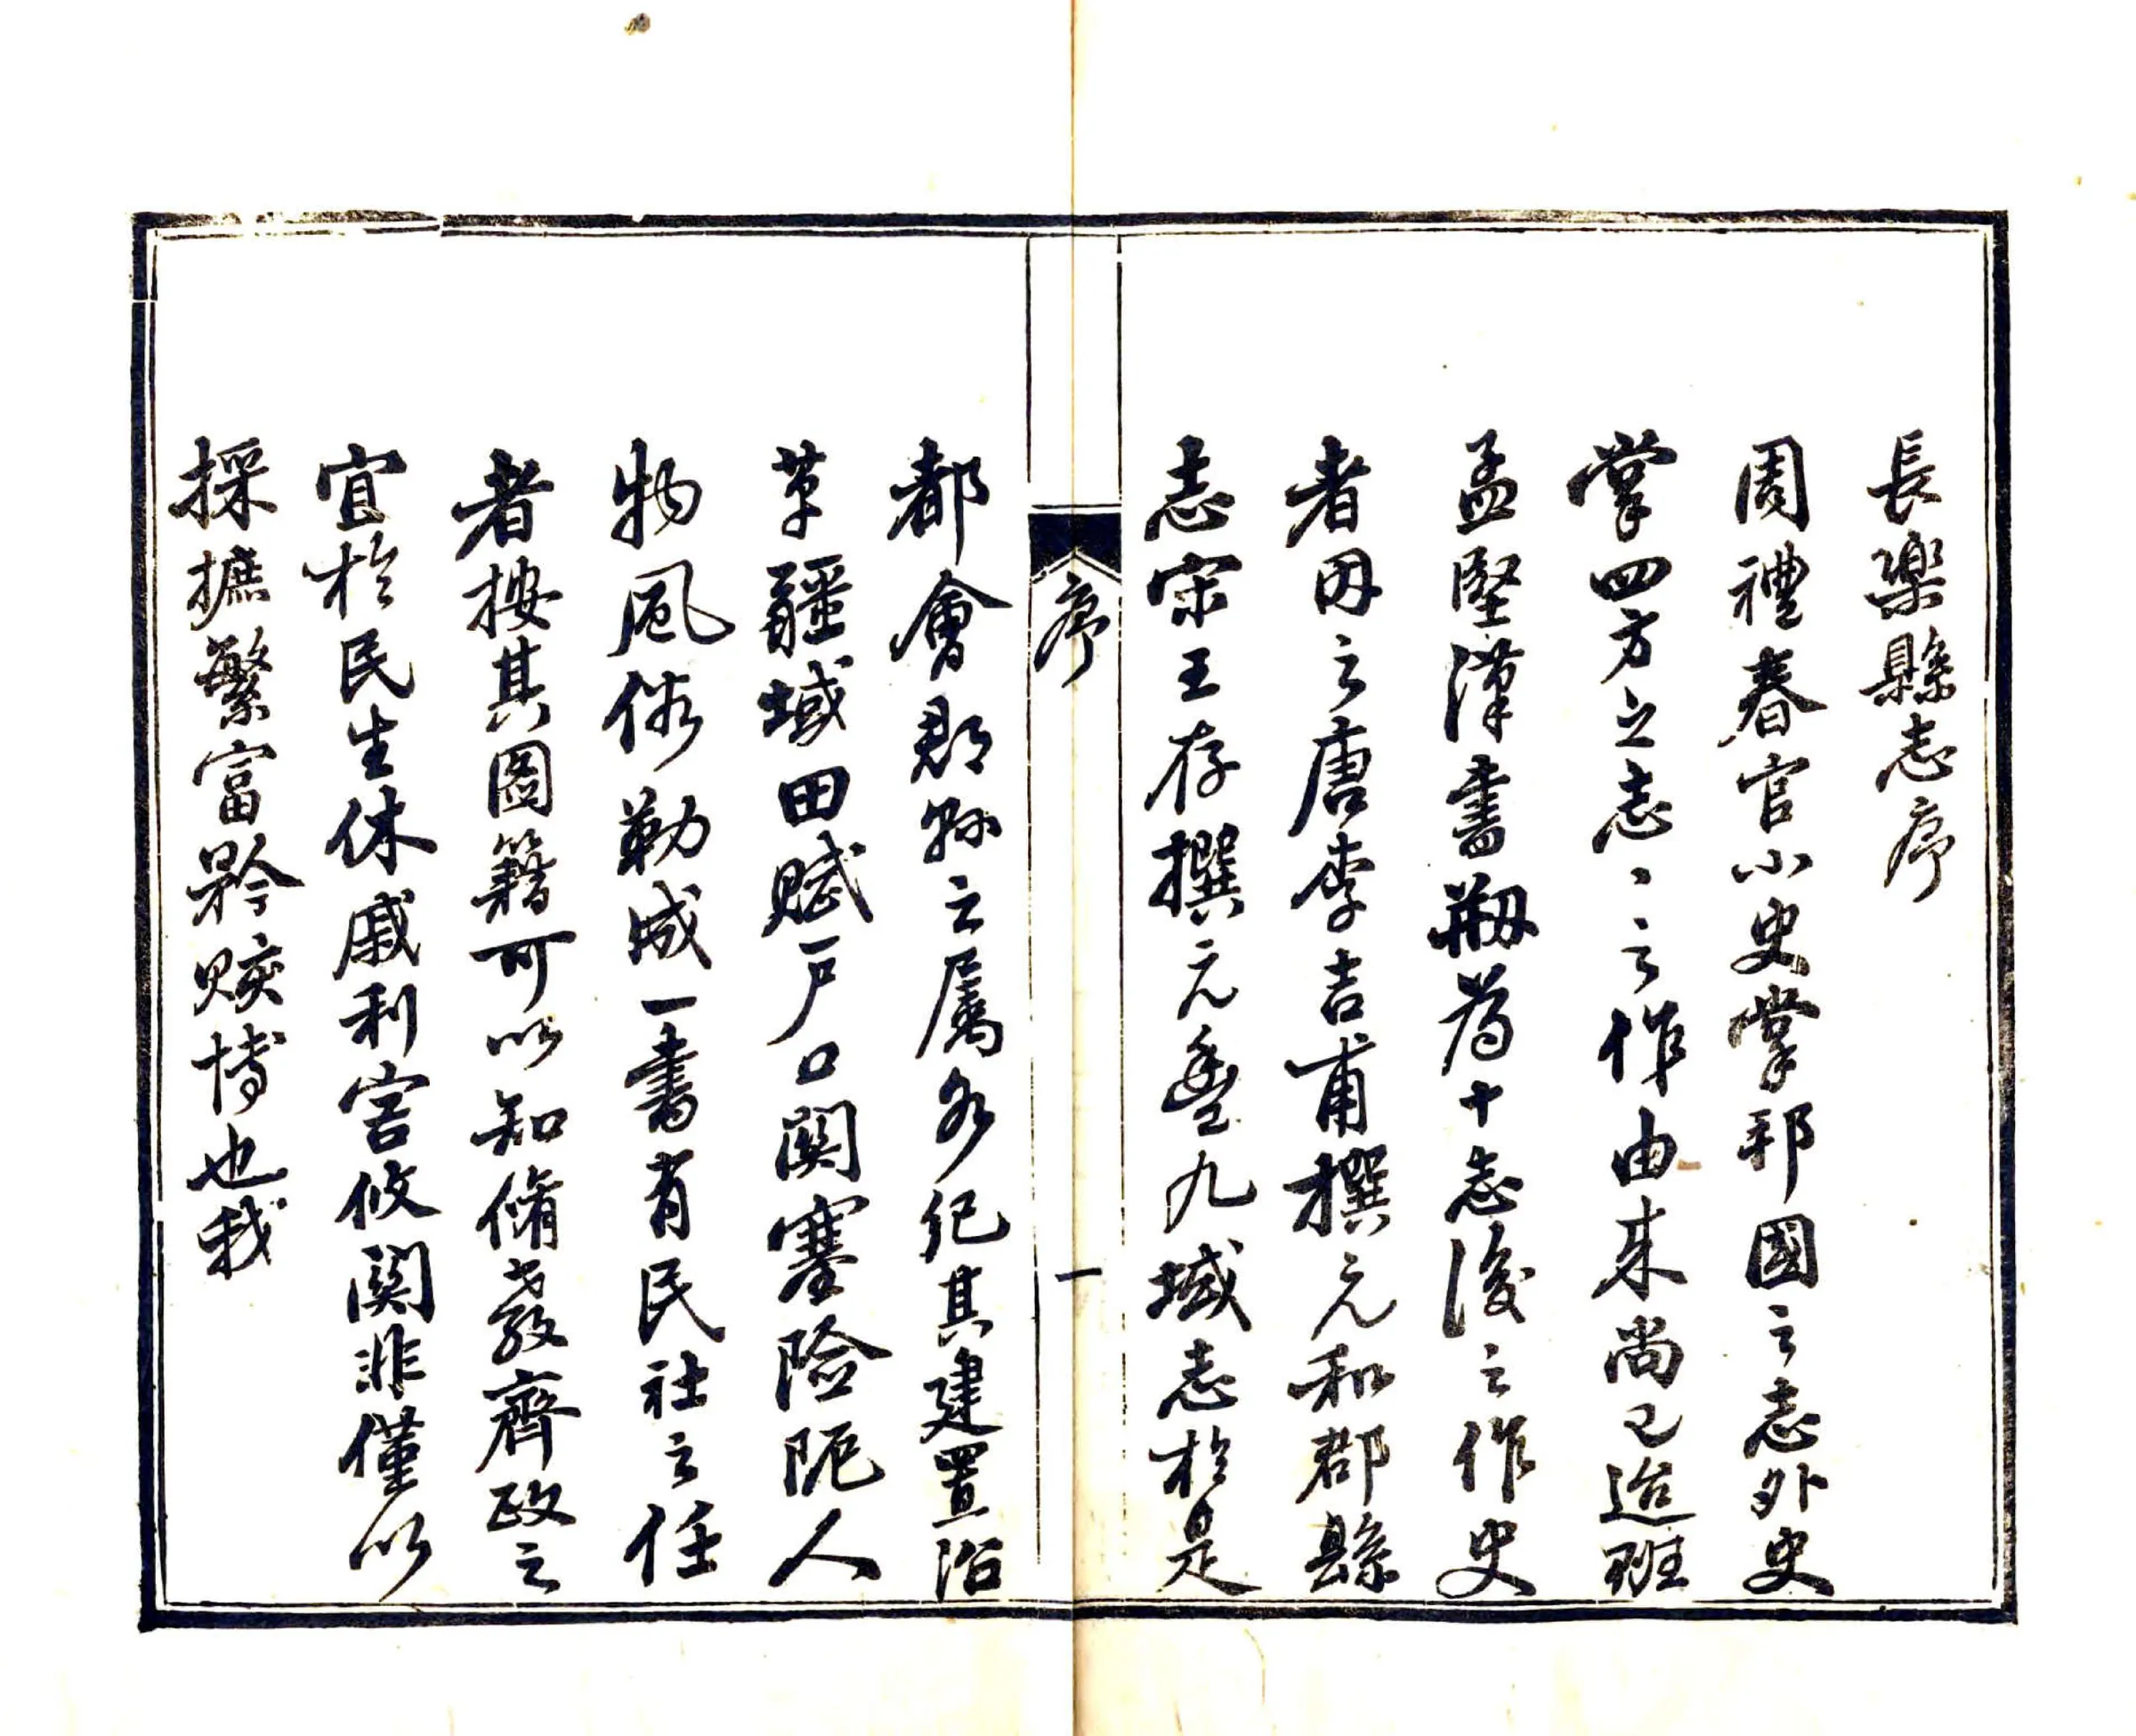 長樂縣志序
周禮春官小史掌邦國之志外史
掌四方之志〻之作由来尚已迨班
孟堅漢書剏為十志後之作史
者因之唐李吉甫撰元和郡縣
志宋王存撰元豐九域志於是
序
一
都會郡縣之屬各紀其建置沿
革疆域田賦戶口關塞險阨人
物風俗勒成一書有民社之任
者按其圖籍可以知脩教齊政之
宜於民生休戚利害攸關非僅以
採摭繁富矜賅博也我